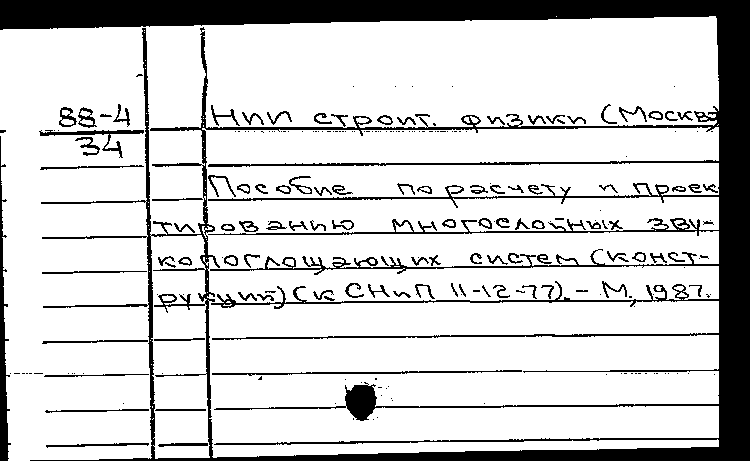 88-4
34
НИИ строит. физики (Москва)
Пособие по расчету и проек
тированию многослойных зву-
копоглощающих систем (конст-
рукций) (к СНиП II-12-77). - М., 1987.